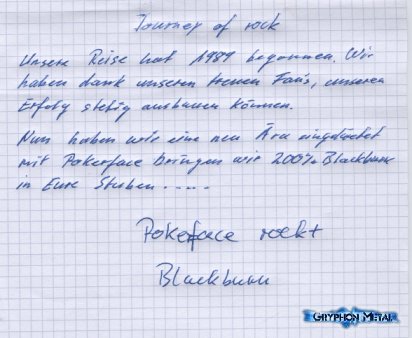 Journey of rock
Unsere Reise hat 1989 begonnen. Wir
haben dank unseren treuen Fans, unseren
Erfolg stetig ausbauen können.
Nun haben wir eine neu Ära eingeläutet
mit Pokerface bringen wir 200% Blackburn
in Eure Stuben.....
Pokerface rockt
Blackburn
Gryphon Metal